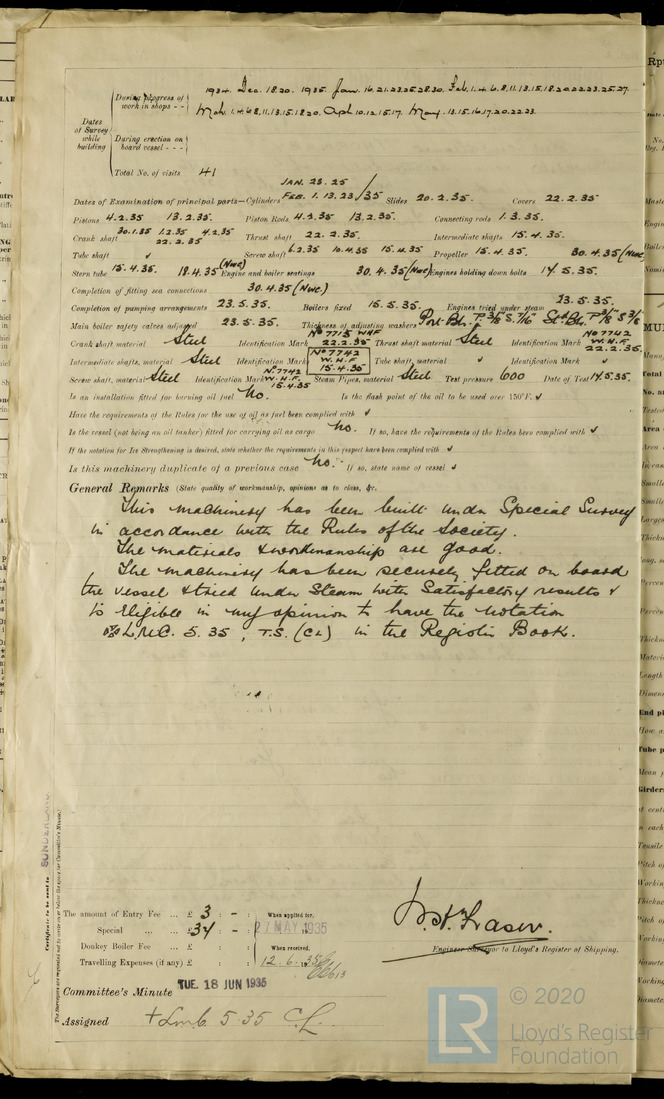 During progress of work in shops - - 1934. Dec. 18.20. 1935. Jan. 16.21.23.25.28.30. Feb. 1.4.6.8.11.13.15.18.20.22.23.25.27.
Mch. 1.4.6.8.11.13.15.18.20. Apl. 10.12.15.17. May. 13.15.16.17.20.22.23.
Dates of Survey while building
During erection on board vessel - - -
Total No. of visits 41
JAN. 23. 25
Dates of Examination of principal parts—Cylinders FEB. 1. 13. 23 /35 Slides 20.2.35. Covers 22.2.35
Pistons 4.2.35 13.2.35. Piston Rods 4.2.35 13.2.35. Connecting rods 1.3.35.
Crank shaft 30.1.35 1.2.35 4.2.35 22.2.35 Thrust shaft 22.2.35. Intermediate shafts 15.4.35.
Tube shaft ✓ Screw shaft 6.2.35 10.4.35 15.4.35 Propeller 15.4.35. 30.4.35 (Nwc)
Stern tube 15.4.35. 18.4.35 (Nwc) Engine and boiler seatings 30.4.35 (Nwc) Engines holding down bolts 14.5.35.
Completion of fitting sea connections 30.4.35 (Nwc.)
Completion of pumping arrangements 23.5.35. Boilers fixed 15.5.35. Engines tried under steam 23.5.35.
Main boiler safety valves adjusted 23.5.35. Thickness of adjusting washers Port Blr. P 3/8 S 7/16 Stbd Blr. P 3/8 S 3/8
Crank shaft material Steel Identification Mark No 7715 WHF 22.2.35 Thrust shaft material Steel Identification Mark No 7742 W.H.F. 22.2.35.
Intermediate shafts, material Steel Identification Marks No 7742 W.H.F. 15.4.35 Tube shaft, material ✓ Identification Mark ✓
Screw shaft, material Steel Identification Mark No 7742 W.H.F. 15.4.35 Steam Pipes, material Steel Test pressure 600 Date of Test 14.5.35.
Is an installation fitted for burning oil fuel No. Is the flash point of the oil to be used over 150°F. ✓
Have the requirements of the Rules for the use of oil as fuel been complied with ✓
Is the vessel (not being an oil tanker) fitted for carrying oil as cargo No. If so, have the requirements of the Rules been complied with ✓
If the notation for Ice Strengthening is desired, state whether the requirements in this respect have been complied with ✓
Is this machinery duplicate of a previous case No. If so, state name of vessel ✓
General Remarks (State quality of workmanship, opinions as to class, &c.
This machinery has been built under Special Survey
in accordance with the Rules of the Society.
The materials & workmanship are good.
The machinery has been securely fitted on board
the vessel & tried under Steam with Satisfactory results &
is Eligible in my opinion to have the notation
L.M.C. 5. 35, T.S. (CL) in the Register Book.
Certificate to be sent to SUNDERLAND
The Surveyors are requested not to write on or below the space for Committee's Minute.
The amount of Entry Fee ... £ 3 : - :
Special ... ... £ 34 : - :
Donkey Boiler Fee ... £ : :
Travelling Expenses (if any) £ : :
When applied for,
27 MAY 1935
When received,
12.6.1935
W.H. Fraser.
Engineer Surveyor to Lloyd's Register of Shipping.
Committee's Minute TUE. 18 JUN 1935
Assigned + Lmc. 5 35 C.L.
LR
© 2020
Lloyd's Register
Foundation